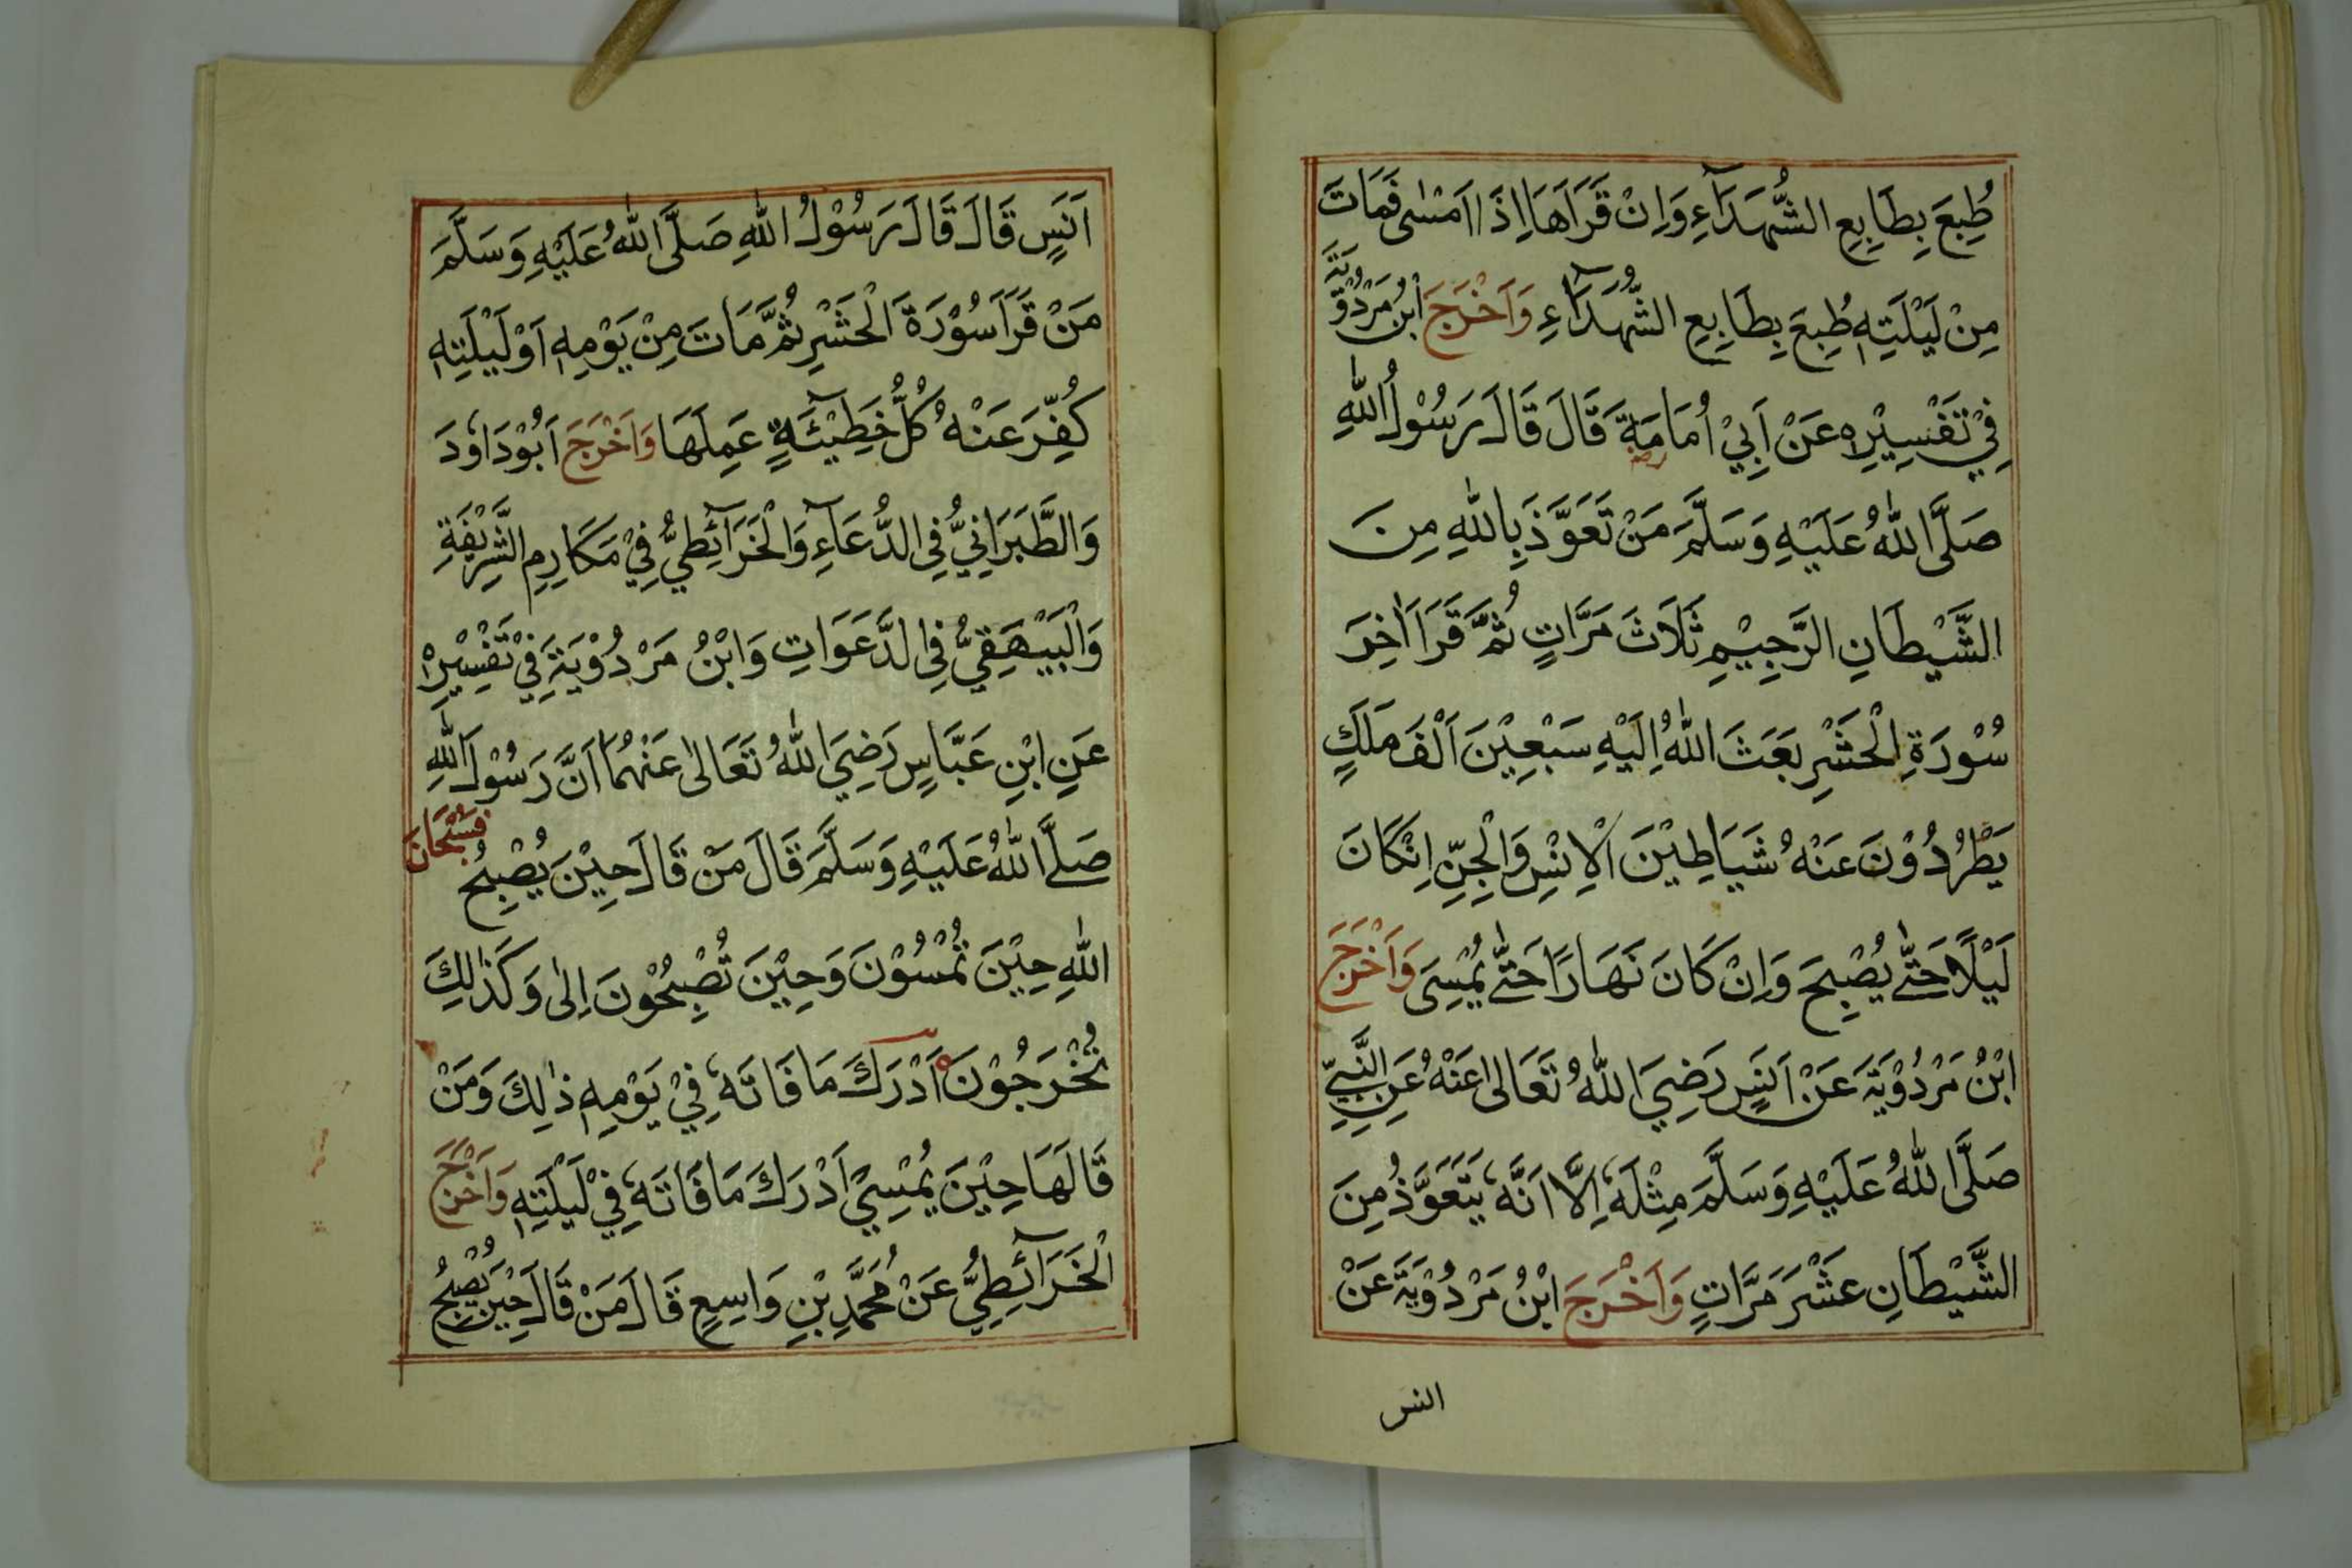 طُبِعَ بِطَابِعِ الشُّهَدَآءِ وَاِنْ قَرَاَهَا اِذَا اَمْسٰى فَمَاتَ
مِنْ لَيْلَتِهٖ طُبِعَ بِطَابِعِ الشُّهَدَآءِ وَاَخْرَجَ ابْنُ مَرْدُوْيَةَ
فِيْ تَفْسِيْرِهٖ عَنْ اَبِيْ اُمَامَةَ رضـ قَالَ قَالَ رَسُوْلُ اللّٰهِ
صَلَّى اللّٰهُ عَلَيْهِ وَسَلَّمَ مَنْ تَعَوَّذَ بِاللّٰهِ مِنَ
الشَّيْطَانِ الرَّجِيْمِ ثَلَاثَ مَرَّاتٍ ثُمَّ قَرَاَ اٰخِرَ
سُوْرَةِ الْحَشْرِ بَعَثَ اللّٰهُ اِلَيْهِ سَبْعِيْنَ اَلْفَ مَلَكٍ
يَطْرُدُوْنَ عَنْهُ شَيَاطِيْنَ الْاِنْسِ وَالْجِنِّ اِنْ كَانَ
لَيْلًا حَتّٰى يُصْبِحَ وَاِنْ كَانَ نَهَارًا حَتّٰى يُمْسِيَ وَاَخْرَجَ
ابْنُ مَرْدُوْيَةَ عَنْ اَنَسٍ رَضِيَ اللّٰهُ تَعَالٰى عَنْهُ عَنِ النَّبِيِّ
صَلَّى اللّٰهُ عَلَيْهِ وَسَلَّمَ مِثْلَهٗ اِلَّا اَنَّهٗ يَتَعَوَّذُ مِنَ
الشَّيْطَانِ عَشْرَ مَرَّاتٍ وَاَخْرَجَ ابْنُ مَرْدُوْيَةَ عَنْ
انس
اَنَسٍ قَالَ قَالَ رَسُوْلُ اللّٰهِ صَلَّى اللّٰهُ عَلَيْهِ وَسَلَّمَ
مَنْ قَرَاَ سُوْرَةَ الْحَشْرِ ثُمَّ مَاتَ مِنْ يَوْمِهٖ اَوْ لَيْلَتِهٖ
كُفِّرَ عَنْهُ كُلُّ خَطِيْٓئَةٍ عَمِلَهَا وَاَخْرَجَ اَبُوْدَاوٗدَ
وَالطَّبَرَانِيُّ فِي الدُّعَآءِ وَالْخَرَآئِطِيُّ فِيْ مَكَارِمِ الشَّرِيْفَةِ
وَالْبَيْهَقِيُّ فِي الدَّعَوَاتِ وَابْنُ مَرْدُوْيَةَ فِيْ تَفْسِيْرِهٖ
عَنِ ابْنِ عَبَّاسٍ رَضِيَ اللّٰهُ تَعَالٰى عَنْهُمَا اَنَّ رَسُوْلَ اللّٰهِ
صَلَّى اللّٰهُ عَلَيْهِ وَسَلَّمَ قَالَ مَنْ قَالَ حِيْنَ يُصْبِحُ فَسُبْحَانَ
اللّٰهِ حِيْنَ تُمْسُوْنَ وَحِيْنَ تُصْبِحُوْنَ اِلٰى وَكَذٰلِكَ
تُخْرَجُوْنَ اَدْرَكَ مَا فَاتَهٗ فِيْ يَوْمِهٖ ذٰلِكَ وَمَنْ
قَالَهَا حِيْنَ يُمْسِيْ اَدْرَكَ مَا فَاتَهٗ فِيْ لَيْلَتِهٖ وَاَخْرَجَ
الْخَرَآئِطِيُّ عَنْ مُحَمَّدِ بْنِ وَاسِعٍ قَالَ مَنْ قَالَ حِيْنَ يُصْبِحُ